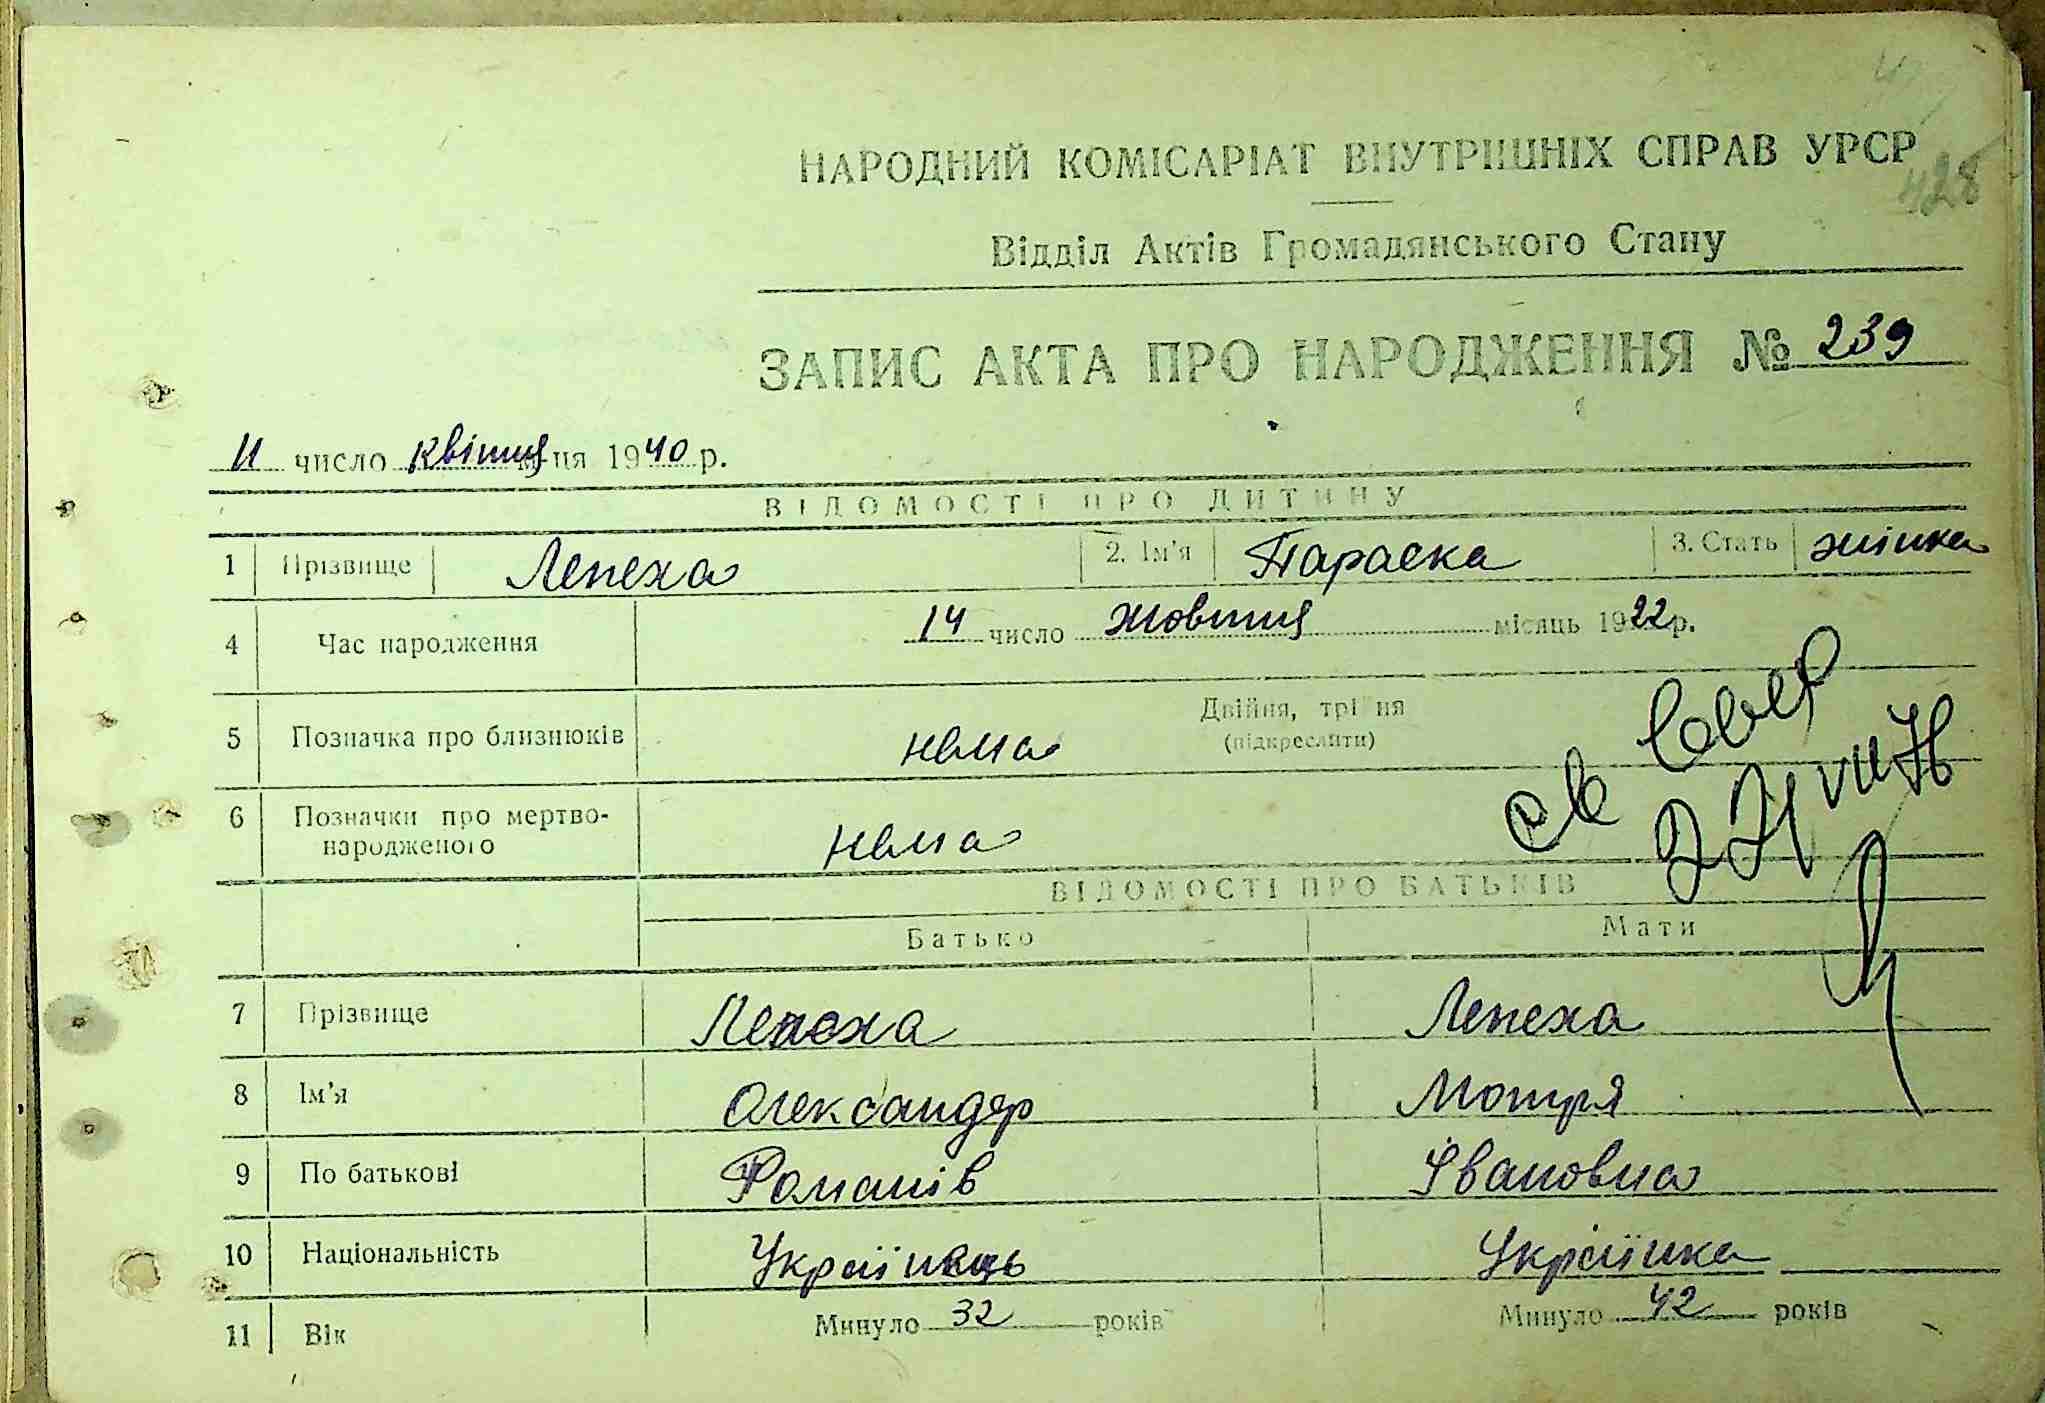 428
НАРОДНИЙ КОМІСАРІАТ ВНУТРІШНІХ СПРАВ УРСР
Відділ Актів Громадянського Стану
ЗАПИС АКТА ПРО НАРОДЖЕННЯ № 239
11 число квітня м-ця 1940 р.
ВІДОМОСТІ ПРО ДИТИНУ
1 Прізвище Лепеха 2. Ім'я Параска 3. Стать жінка
4 Час народження 14 число жовтня місяць 1922 р.
5 Позначка про близнюків нема Двійня, трійня (підкреслити)
6 Позначки про мертвонародженого нема
ВІДОМОСТІ ПРО БАТЬКІВ
Батько Мати
7 Прізвище Лепеха Лепеха
8 Ім'я Олександер Мотря
9 По батькові Романів Івановна
10 Національність Українець Українка
11 Вік Минуло 32 років Минуло 42 років